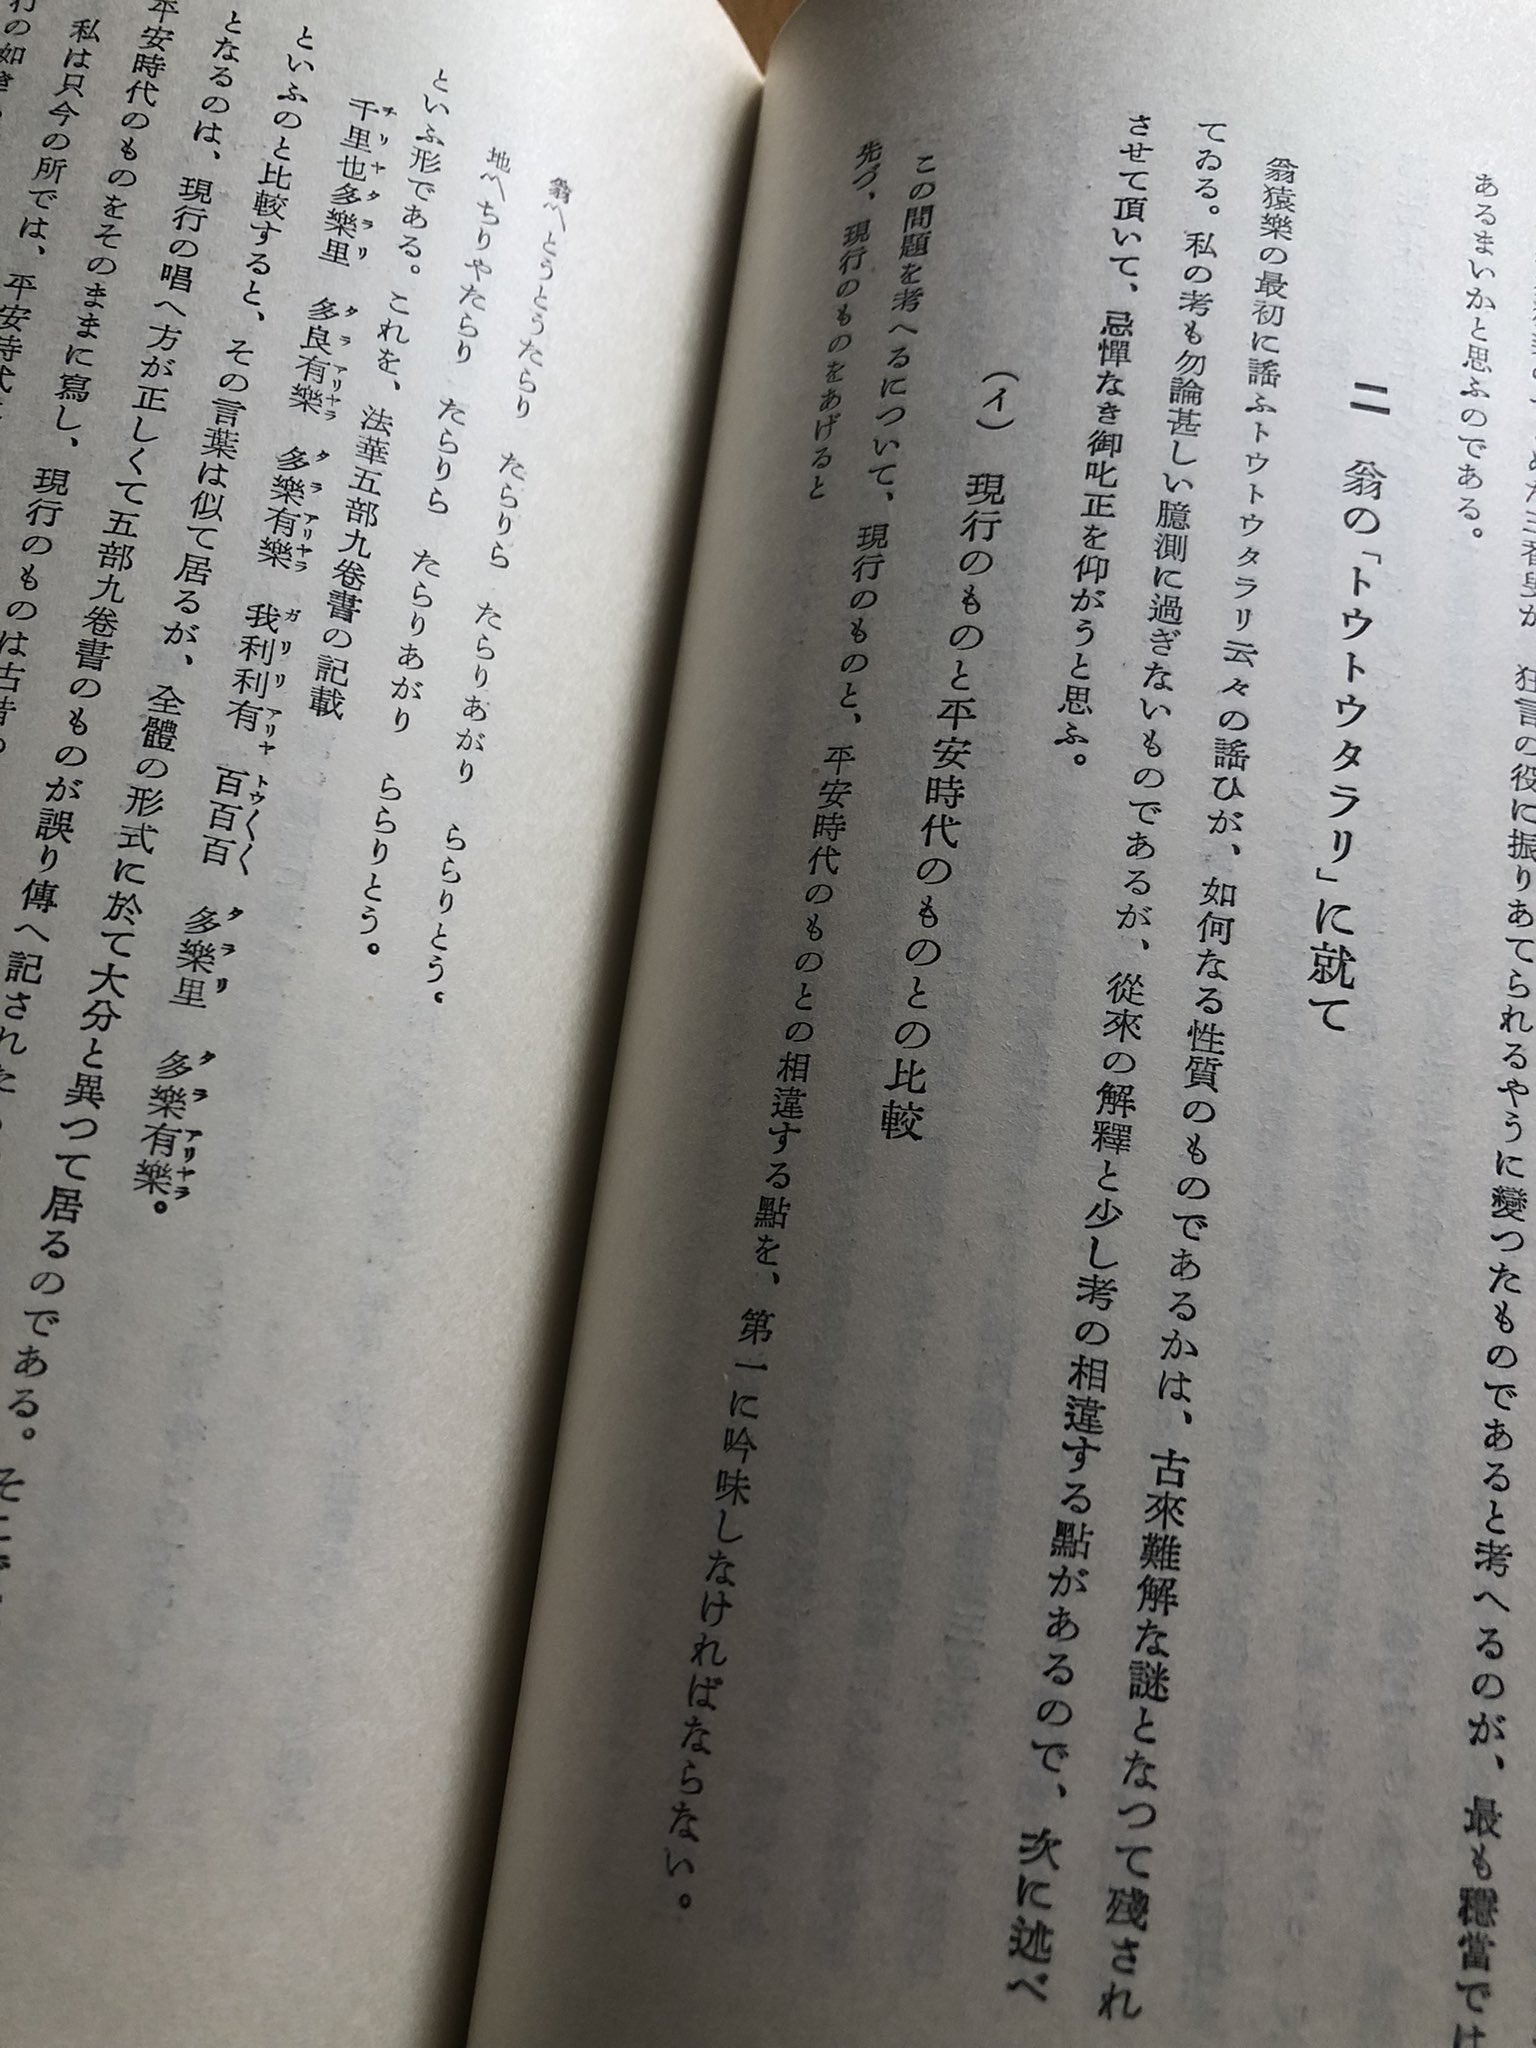 狂言の役に振りあてられるやうに變つたものであると考へるのが、最も穩當では
あるまいかと思ふのである。
二 翁の「トウトウタラリ」に就て
翁猿樂の最初に謠ふトウトウタラリ云々の謠ひが、如何なる性質のものであるかは、古來難解な謎となつて殘され
てゐる。私の考も勿論甚しい臆測に過ぎないものであるが、從來の解釋と少し考の相違する點があるので、次に述べ
させて頂いて、忌憚なき御叱正を仰がうと思ふ。
（イ） 現行のものと平安時代のものとの比較
この問題を考へるについて、現行のものと、平安時代のものとの相違する點を、第一に吟味しなければならない。
先づ、現行のものをあげると
翁〽とうとうたらり たらりら たらりあがり ららりとう。
地〽ちりやたらり たらりら たらりあがり ららりとう。
といふ形である。これを、法華五部九卷書の記載
千里也多樂里 多良有樂 多樂有樂 我利利有 百百百 多樂里 多樂有樂。
チリヤタラリ タラアリヤラ タラアリヤラ ガリリアリヤ トウ〱〱 タラリ タラアリヤラ
といふのと比較すると、その言葉は似て居るが、全體の形式に於て大分と異つて居るのである。
となるのは、現行の唱へ方が正しくて五部九卷書のものが誤り傳へ記された
平安時代のものをそのままに寫し、現行のものは古昔
私は只今の所では、平安時代